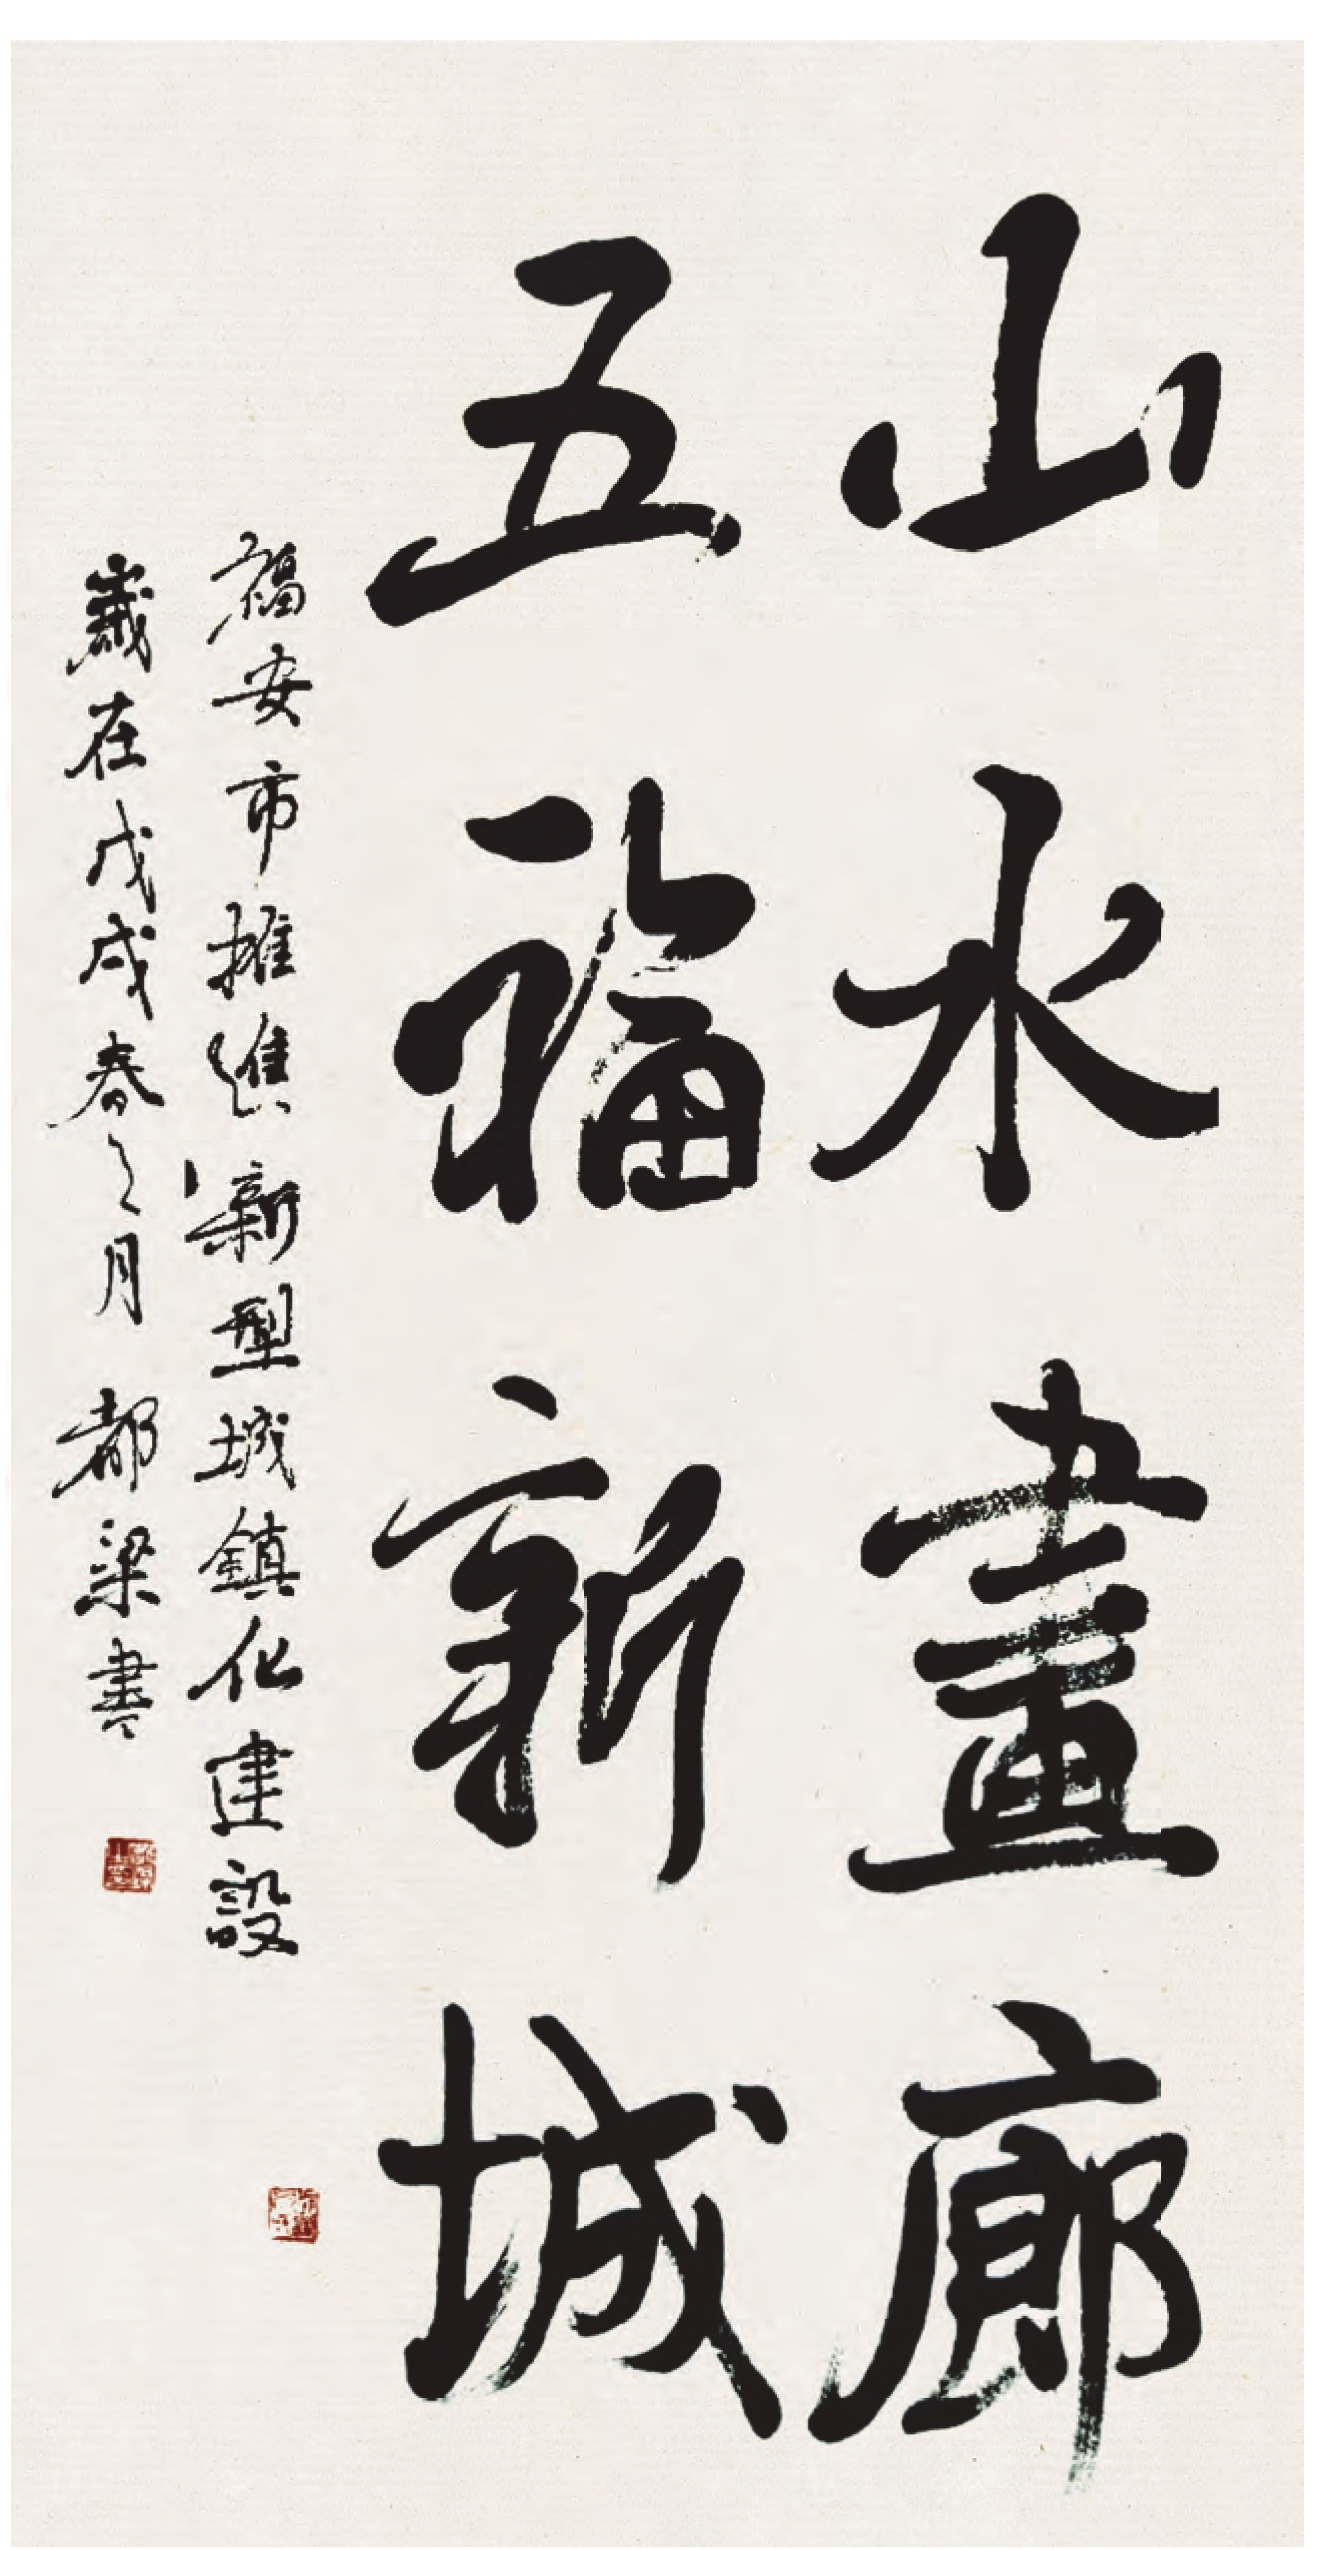 山水畫廊
五福新城
福安市推進新型城鎮化建設
歲在戊戌春之月 都梁書